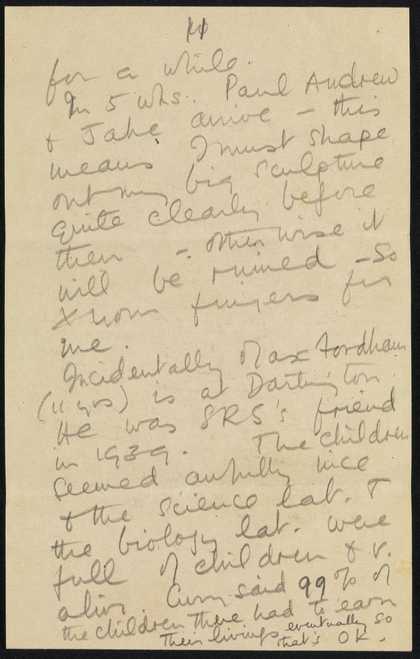 11
for a while.
In 5 wks. Paul Andrew
& Jake arrive – this
means I must shape
out my big sculpture
quite clearly before
then – otherwise it
will be ruined – so
X your fingers for
me.
Incidentally Max Fordham
(11 yrs) is at Dartington
He was SRS's friend
in 1939. The children
seemed awfully nice
& the science lab. &
the biology lab. were
full of children & v.
alive. Curry said 99% of
the children there had to earn
their livings eventually so
that's OK.